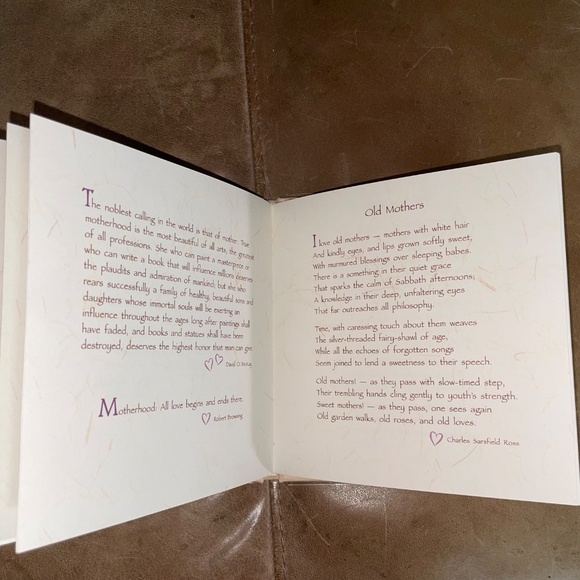 The noblest calling in the world is that of mother. True
motherhood is the most beautiful of all arts, the greatest
of all professions. She who can paint a masterpiece or
who can write a book that will influence millions deserves
the plaudits and admiration of mankind; but she who
rears successfully a family of healthy, beautiful sons and
daughters whose immortal souls will be exerting an
influence throughout the ages long after paintings shall
have faded, and books and statues shall have been
destroyed, deserves the highest honor that man can give.
David O.
Motherhood: All love begins and ends there.
Robert Browning
Old Mothers
I love old mothers — mothers with white hair
And kindly eyes, and lips grown softly sweet,
With murmured blessings over sleeping babes.
There is a something in their quiet grace
That sparks the calm of Sabbath afternoons;
A knowledge in their deep, unfaltering eyes
That far outreaches all philosophy.
Time, with caressing touch about them weaves
The silver-threaded fairy-shawl of age,
While all the echoes of forgotten songs
Seem joined to lend a sweetness to their speech.
Old mothers! — as they pass with slow-timed step,
Their trembling hands cling gently to youth's strength.
Sweet mothers! — as they pass, one sees again
Old garden walks, old roses, and old loves.
Charles Sarsfield Ross